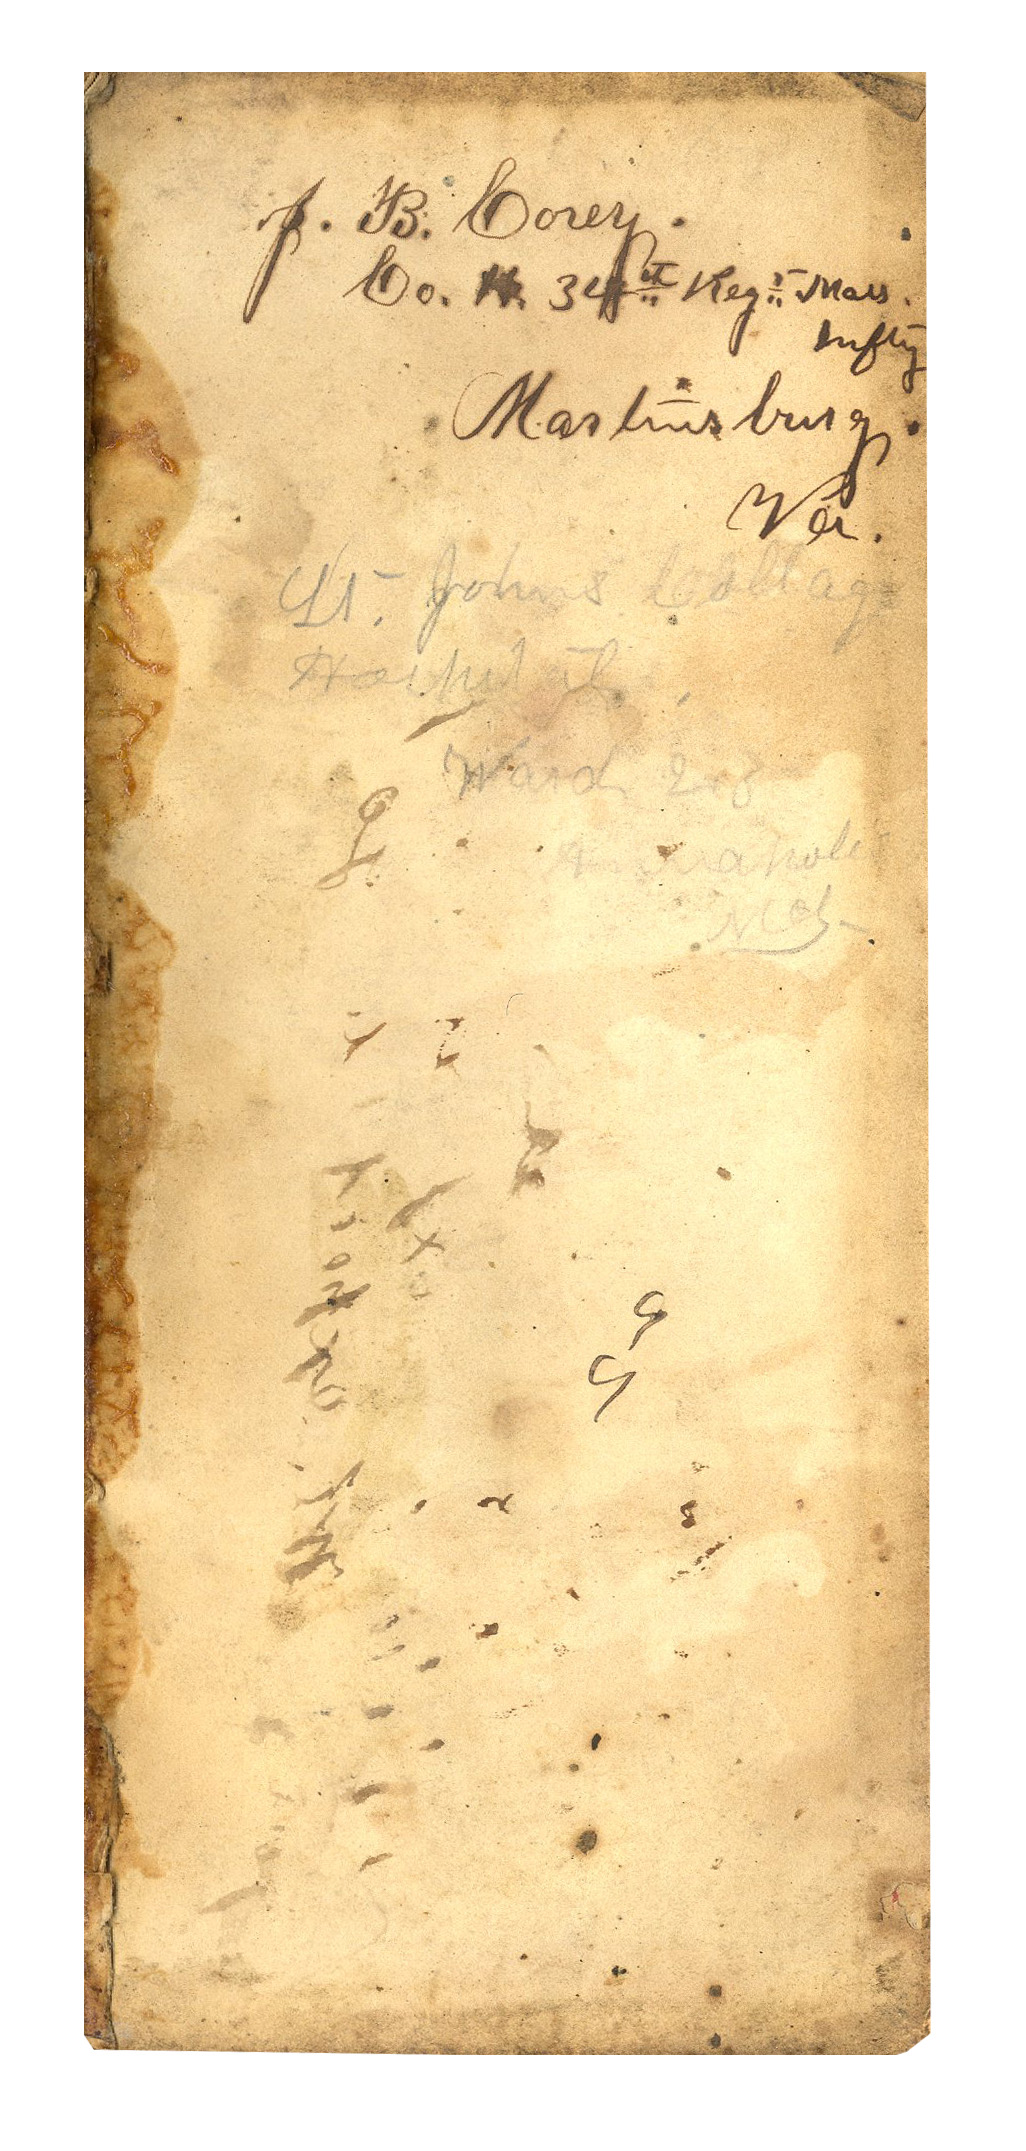 J. B. Corey.
Co. H. 34th Regt Mass.
Infty
Martinsburg.
Va.
St. Johns Collage
Hospital.
Ward 2.8
Annapolis
Md.
9
9